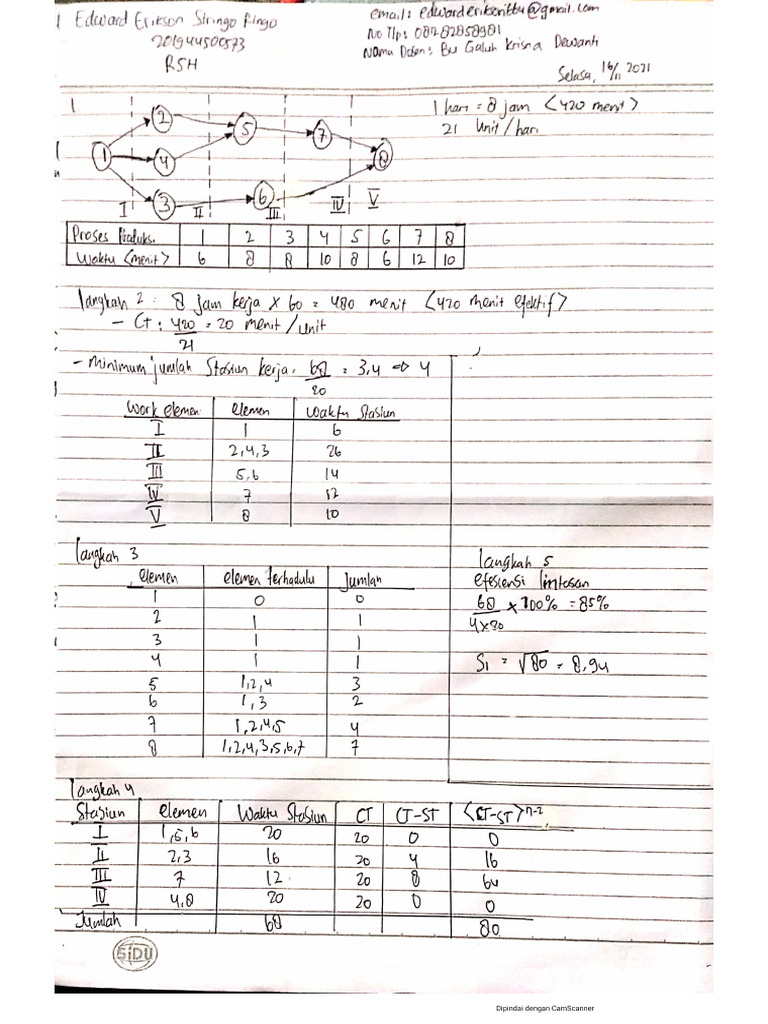 Edward Erikson Siringo Ringo
email: edwarderiksonttu@gmail.com
201944500573
No Tlp: 08782858981
R5H
Nama Dosen: Bu Galuh Krisna Dewanti
Selasa, 16/11 2021
1
1 hari = 8 jam <420 menit>
21 Unit/hari
1 2 3 4 5 6 7 8
I II III IV V
Proses Produksi. 1 2 3 4 5 6 7 8
Waktu <menit> 6 8 8 10 8 6 12 10
langkah 2 : 8 jam kerja x 60 = 480 menit <420 menit efektif>
- CT : 420/21 = 20 menit/unit
- Minimum jumlah Stasiun kerja. 68/20 = 3,4 => 4
Work elemen elemen Waktu Stasiun
I 1 6
II 2,4,3 26
III 5,6 14
IV 7 12
V 8 10
langkah 3
elemen elemen terhadulu Jumlah
1 0 0
2 1 1
3 1 1
4 1 1
5 1,2,4 3
6 1,3 2
7 1,2,4,5 4
8 1,2,4,3,5,6,7 7
langkah 5
efesiensi lintasan
68/4x80 x 100% = 85%
SI = √80 = 8,94
langkah 4
Stasiun elemen Waktu Stasiun CT CT-ST <CT-ST>^n-2
I 1,5,6 20 20 0 0
II 2,3 16 20 4 16
III 7 12 20 8 64
IV 4,8 20 20 0 0
Jumlah 68 80
SiDU
Dipindai dengan CamScanner